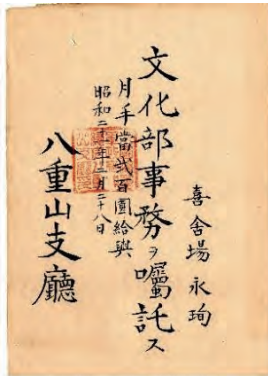 喜舍場永珣
文化部事務ヲ囑託ス
月手當貳百圓給與
昭和二十一年三月二十八日
八重山支廳